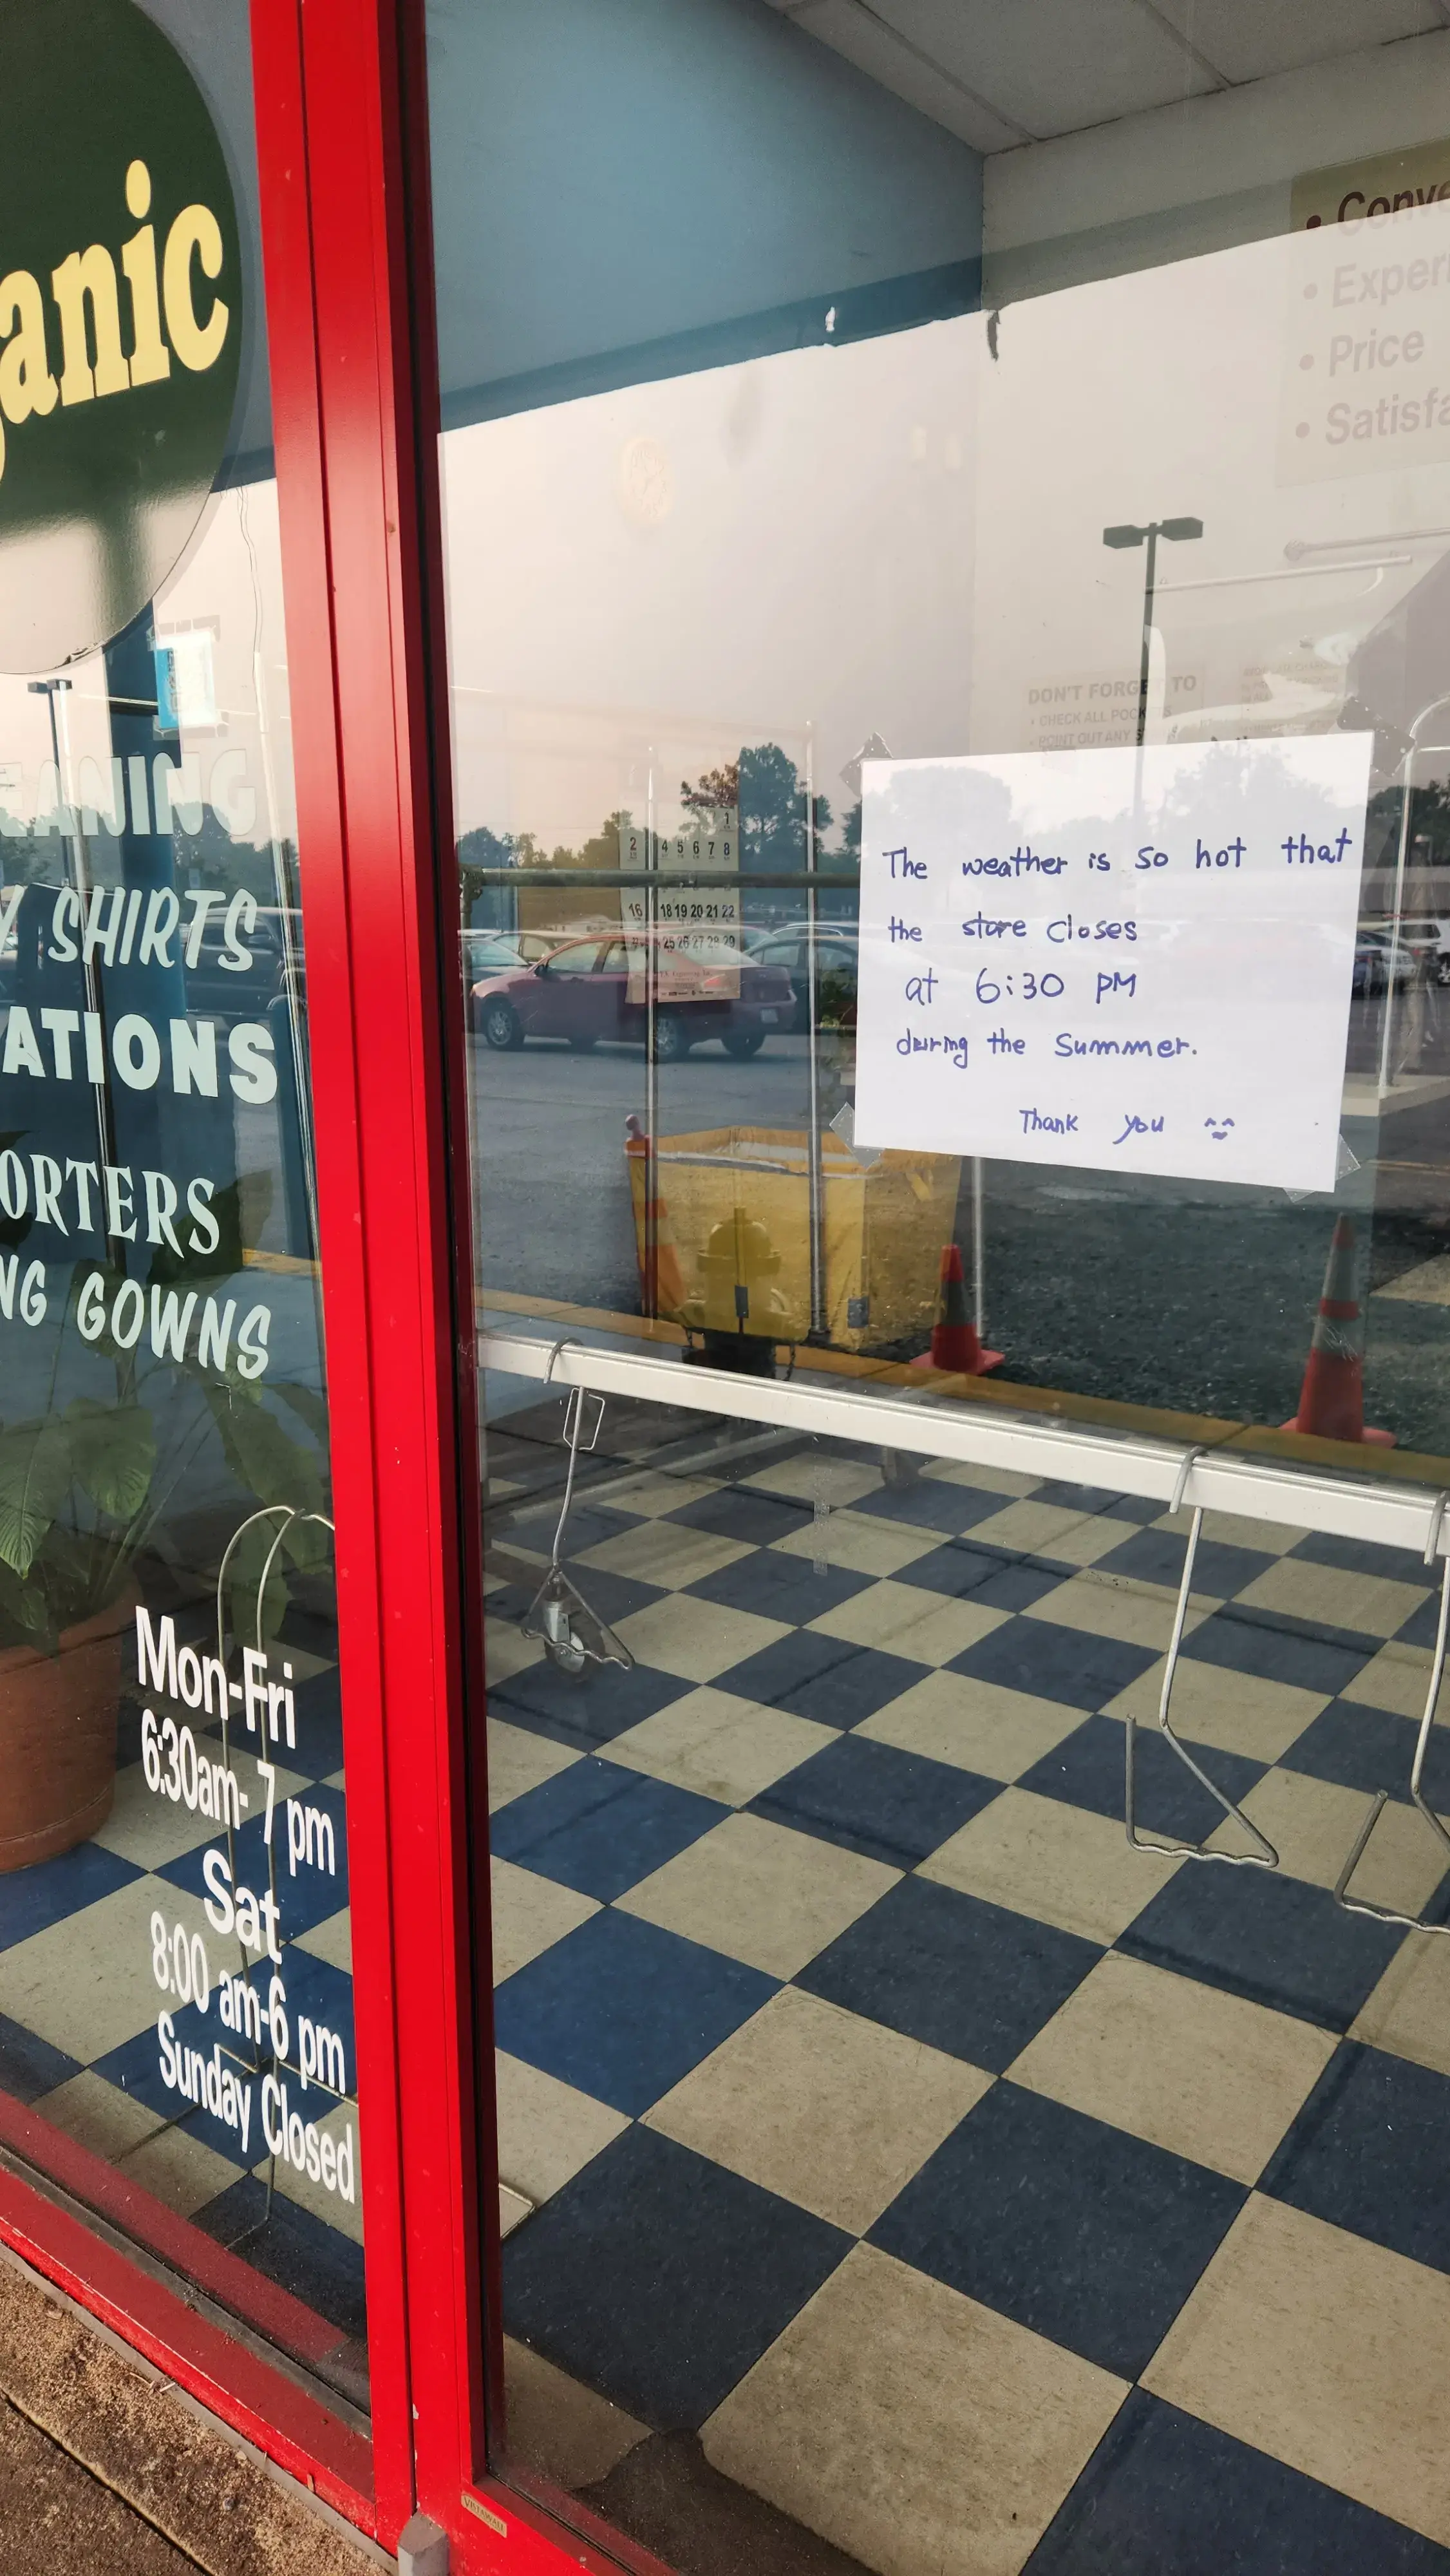 anic
EANING
Y SHIRTS
ATIONS
ORTERS
NG GOWNS
Mon-Fri
6:30am- 7 pm
Sat
8:00 am-6 pm
Sunday Closed
• Conve
• Exper
• Price
• Satisfa
DON'T FORGET TO
• CHECK ALL POCKETS
• POINT OUT ANY S
1
2 4 5 6 7 8
16 18 19 20 21 22
25 26 27 28 29
The weather is so hot that
the store closes
at 6:30 PM
during the Summer.
Thank you
VISTAWALL